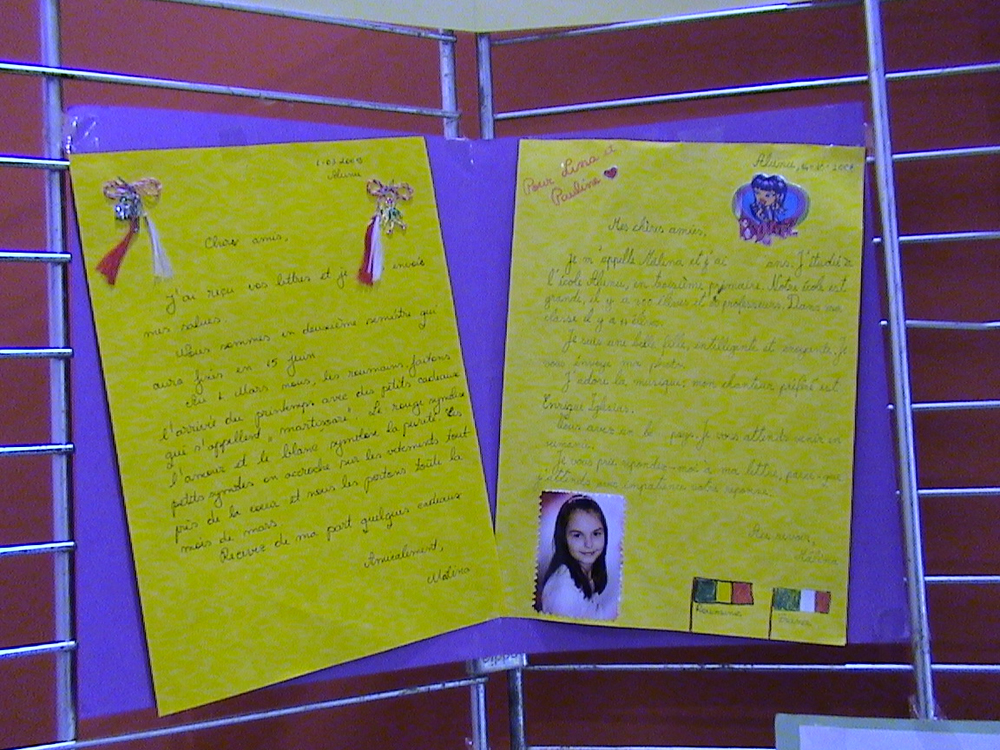 1-03-2009
Alunu
Chers amis,
J'ai reçu vos lettres et je envoie
mes salues.
Nous sommes en deuxième semèstre qui
aura finis en 15 juin.
Au 1 Mars nous, les roumains faitons
l'arrivée du printemps avec des petits cadeaux
qui s'appellent „martisoare”. Le rouge symbolise
l'amour et le blanc symbolise la pureté. Les
petits symboles on accroche sur les vetements tout
près de le coeur et nous les portons toute la
mois de mars.
Recevez de ma part quelques cadeaux
Amicalement,
Malina
Pour Lina et
Pauline
Alunu, 2008
Mes chères amies,
Je m'appelle Malina et j'ai ans. J'étudie à
l'école Alunu, en troisième primaire. Notre école est
grande, il y a 300 élèves et professeurs. Dans ma
classe il y a 11 élèves.
Je suis une belle fille, intelligente et Je
vous envoye ma photo.
J'adore la musique; mon chanteur préféré est
Enrique Iglesias.
Vous avez un pays. Je vous attends venir en
Je vous prie répondez-moi à ma lettre, parce-que
j'attends avec impatience votre réponse.
Au revoir,
Malina
Roumanie